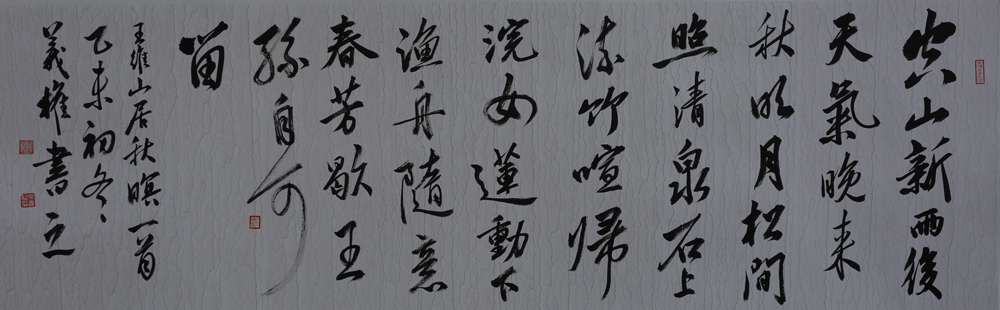 空山新雨後
天氣晚来
秋明月松間
照清泉石上
流竹喧歸
浣女蓮動下
漁舟隨意
春芳歇王
孫自可
留
王維山居秋暝一首
乙未初冬
義權書之